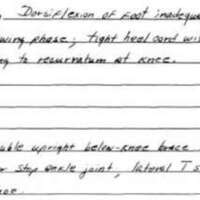 Dorsiflexion of foot inadequa
wing phase; tight heel cord wi
ng to recurvatum at knee.
uble upright below-knee brace
stop ankle joint, lateral T s